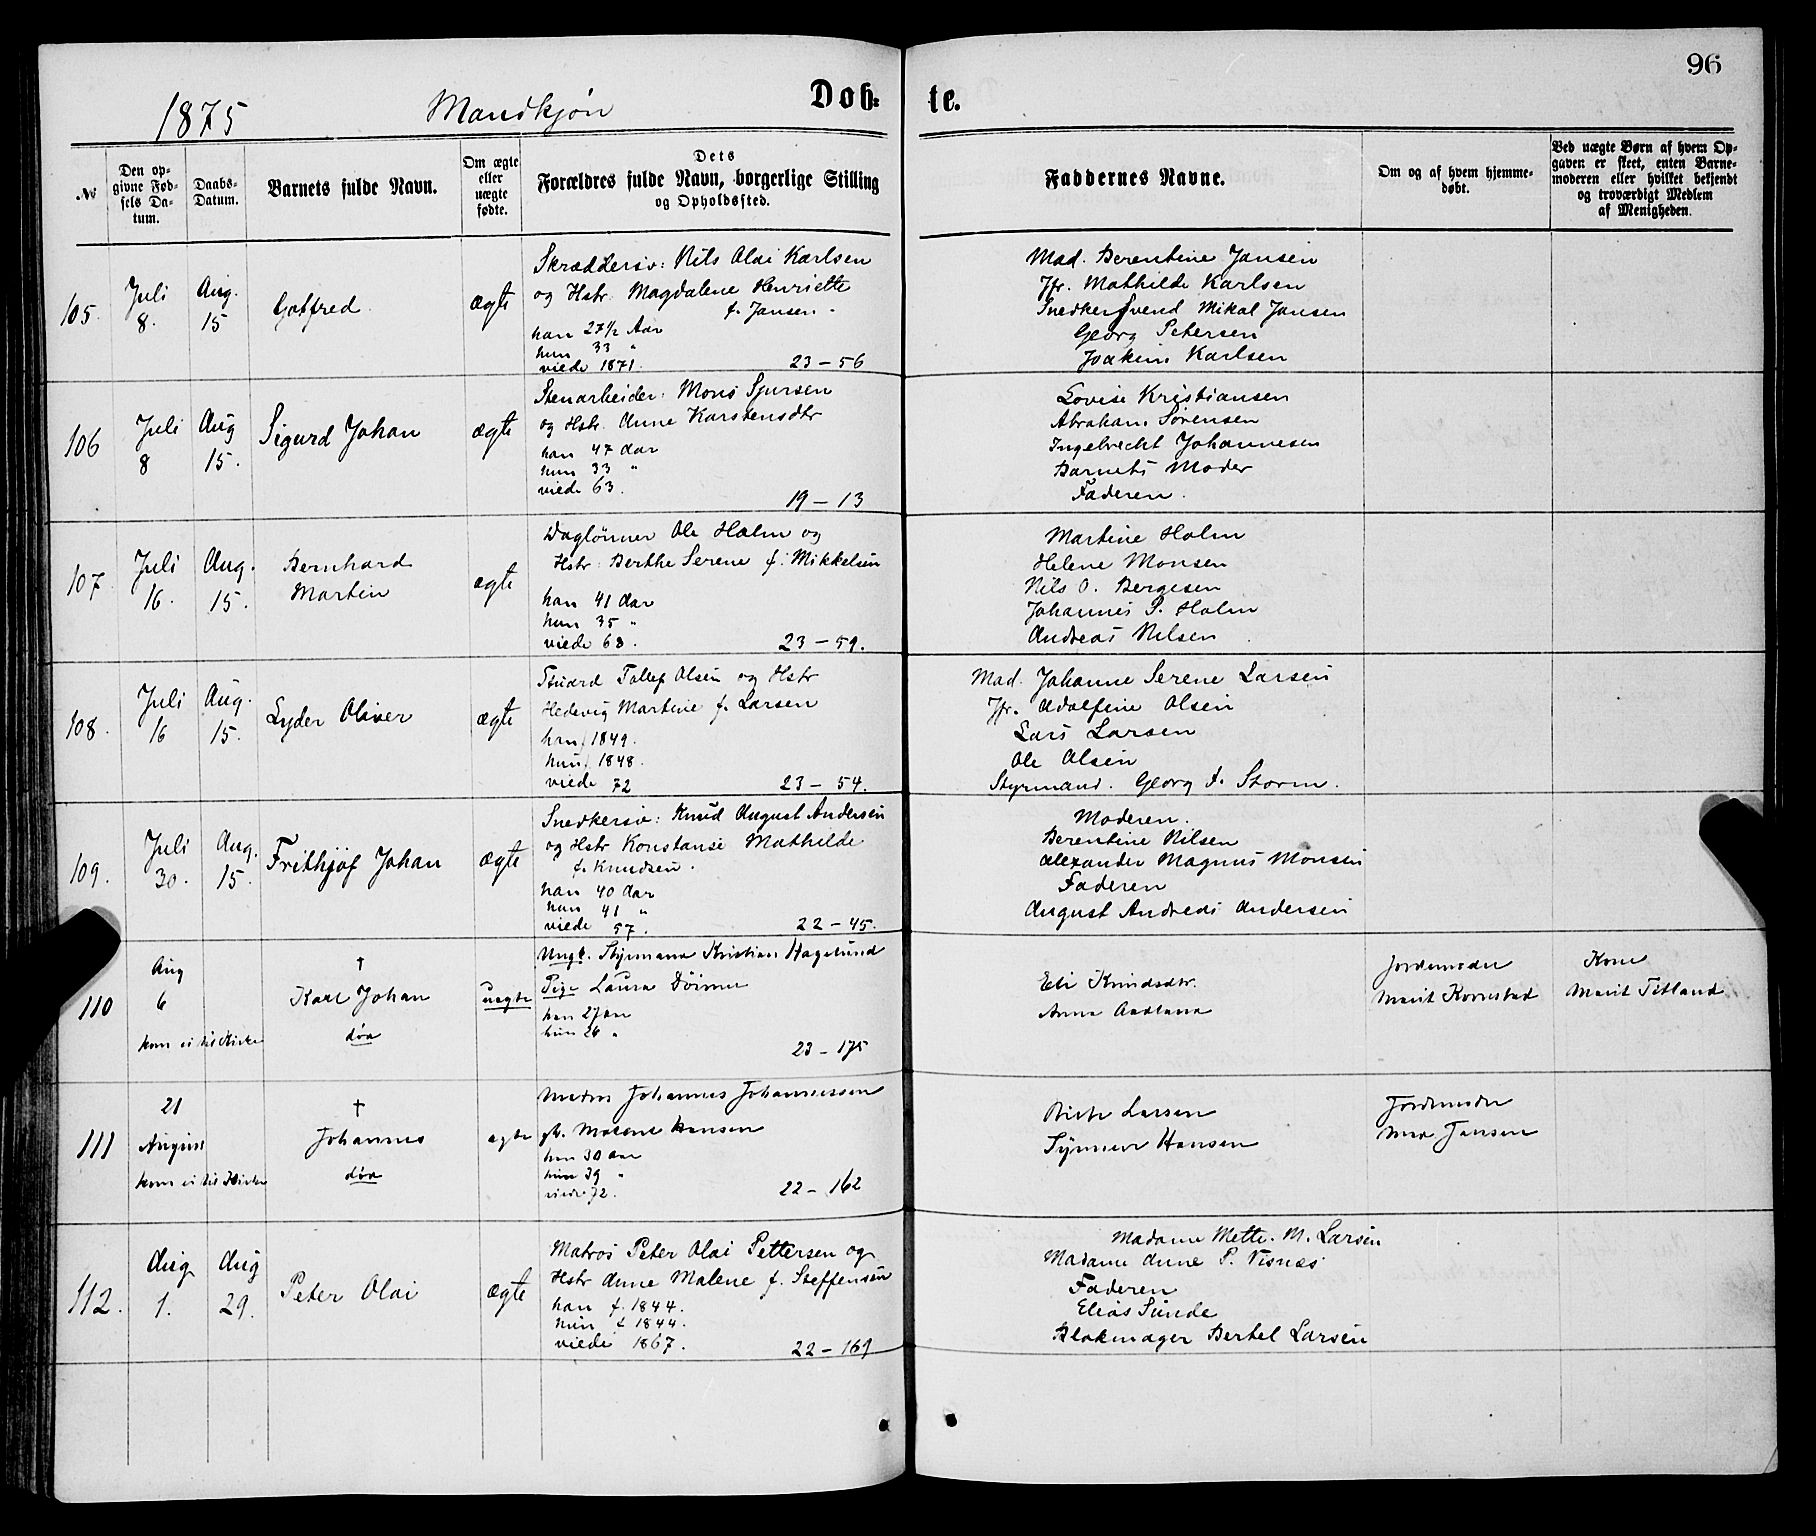 96
1875 Mandkjøn Døb= te.
№
Den op-
givne Fød-
sels Da-
tum.
Daabs-
Datum.
Barnets fulde Navn.
Om ægte
eller
uægte
fødte.
Dets
Forældres fulde Navn, borgerlige Stilling
og Opholdssted.
Faddernes Navne.
Om og af hvem hjemme-
døbt.
Ved uægte Børn af hvem Op-
gaven er skeet, enten Barne-
moderen eller hvilket bekjendt
og troværdigt Medlem
af Menigheden.
105.
Juli
8.
Aug.
15
Gotfred
ægte
Skræddersv: Nils Olai Karlsen
og Hstr. Magdalene Henriette
f. Jansen.
han 27½ Aar
hun 33 "
viede 1871.
23-56
Mad. Berentine Jansen
Jfr. Mathilde Karlsen
Snedkersvend Mikal Jansen
Georg Petersen
Joakim Karlsen
106
Juli
8
Aug
15.
Sigurd Johan
ægte
Stenarbeider: Mons Sjursen
og Hstr. Anne Karstensdtr
han 47 Aar
hun 33 "
viede 63.
19-13
Lovise Kristiansen
Abraham Sørensen
Ingebrecht Johannesen
Barnets Moder
Faderen.
107.
Juli
16.
Aug.
15.
Bernhard
Martin
ægte
Daglønner Ole Holm og
Hstr. Berthe Serene f. Mikkelsen
han 41 Aar
hun 35 "
viede 63.
23-59.
Martine Holm
Helene Monsen
Nils O. Bergesen
Johannes P. Holm
Andreas Nilsen
108.
Juli
16
Aug.
15.
Lyder Oliver
ægte
Stuard Tollef Olsen og Hstr
Hedevig Martine f. Larsen
han f 1849.
hun f. 1848.
viede 72
23-54.
Mad. Johanne Serene Larsen
Jfr. Adolfine Olsen
Lars Larsen
Ole Olsen
Styrmand. Georg F. Storm.
109.
Juli
30.
Aug.
15.
Frithjøf Johan
ægte
Snedkersv: Knud August Andersen
og Hstr Konstanse Mathilde
f. Knudsen.
han 40 Aar
hun 41 "
viede 57.
22-45.
Moderen.
Berentine Nilsen
Alexander Magnus Monsen
Faderen
August Andreas Andersen
110
Aug
6
kom ei til Kirke
†
Karl Johan
død
uægte
Ungk. Styrmand Kristian Hagelund
Pige Laura
han 27 Aar
hun 26 "
23-175
Eli Knudsdtr.
Anna Aadland
Jordemoder
Marit Kornstad
Kone
Marit Titland
111
21
August
kom ei til Kirke
†
Johannes
død
ægte
Matros Johannes Johannessen
gb. Malene Hansen
han 30 Aar
hun 39 "
viede 72.
22-162
Birte Larsen
Synneve Hansen
Jordemoder
Mad Jansen
112.
Aug
1.
Aug
29.
Peter Olai
ægte
Matros Peter Olai Pettersen og
Hstr Anne Malene f. Steffensen
han f. 1844.
hun f 1844.
viede 1867.
22-169
Madame Mette. M. Larsen
Madame Anne P. Visnæs
Faderen
Elias Sunde
Blokmager Bertel Larsen